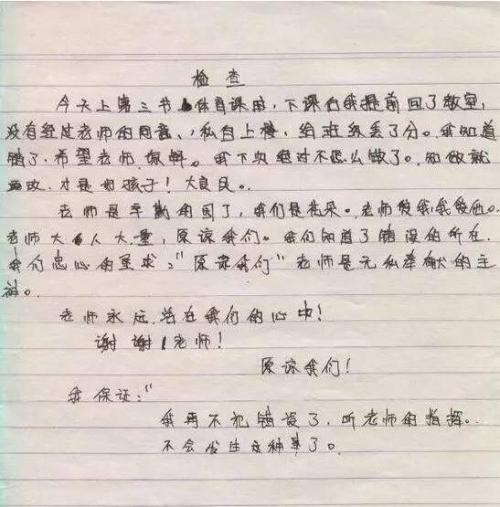 检查
今天上第三节体育课时,下课后我提前回了教室,
没有经过老师的同意、私自上楼,给班级丢了分。我知道
错了,希望老师原谅。我下次绝对不怎么做了。知错就
改,才是好孩子!
老师是辛勤的园丁,我们是花朵。老师爱我,我爱他。
老师大人大量,原谅我们。我们知道了错误的所在,
我们忠心的至求:“原谅我们”老师是无私奉献的主
老师永远活在我们的心中!
谢谢!老师!
原谅我们!
我保证:“
我再不犯错误了,听老师的指挥。
不会发生这种事了。